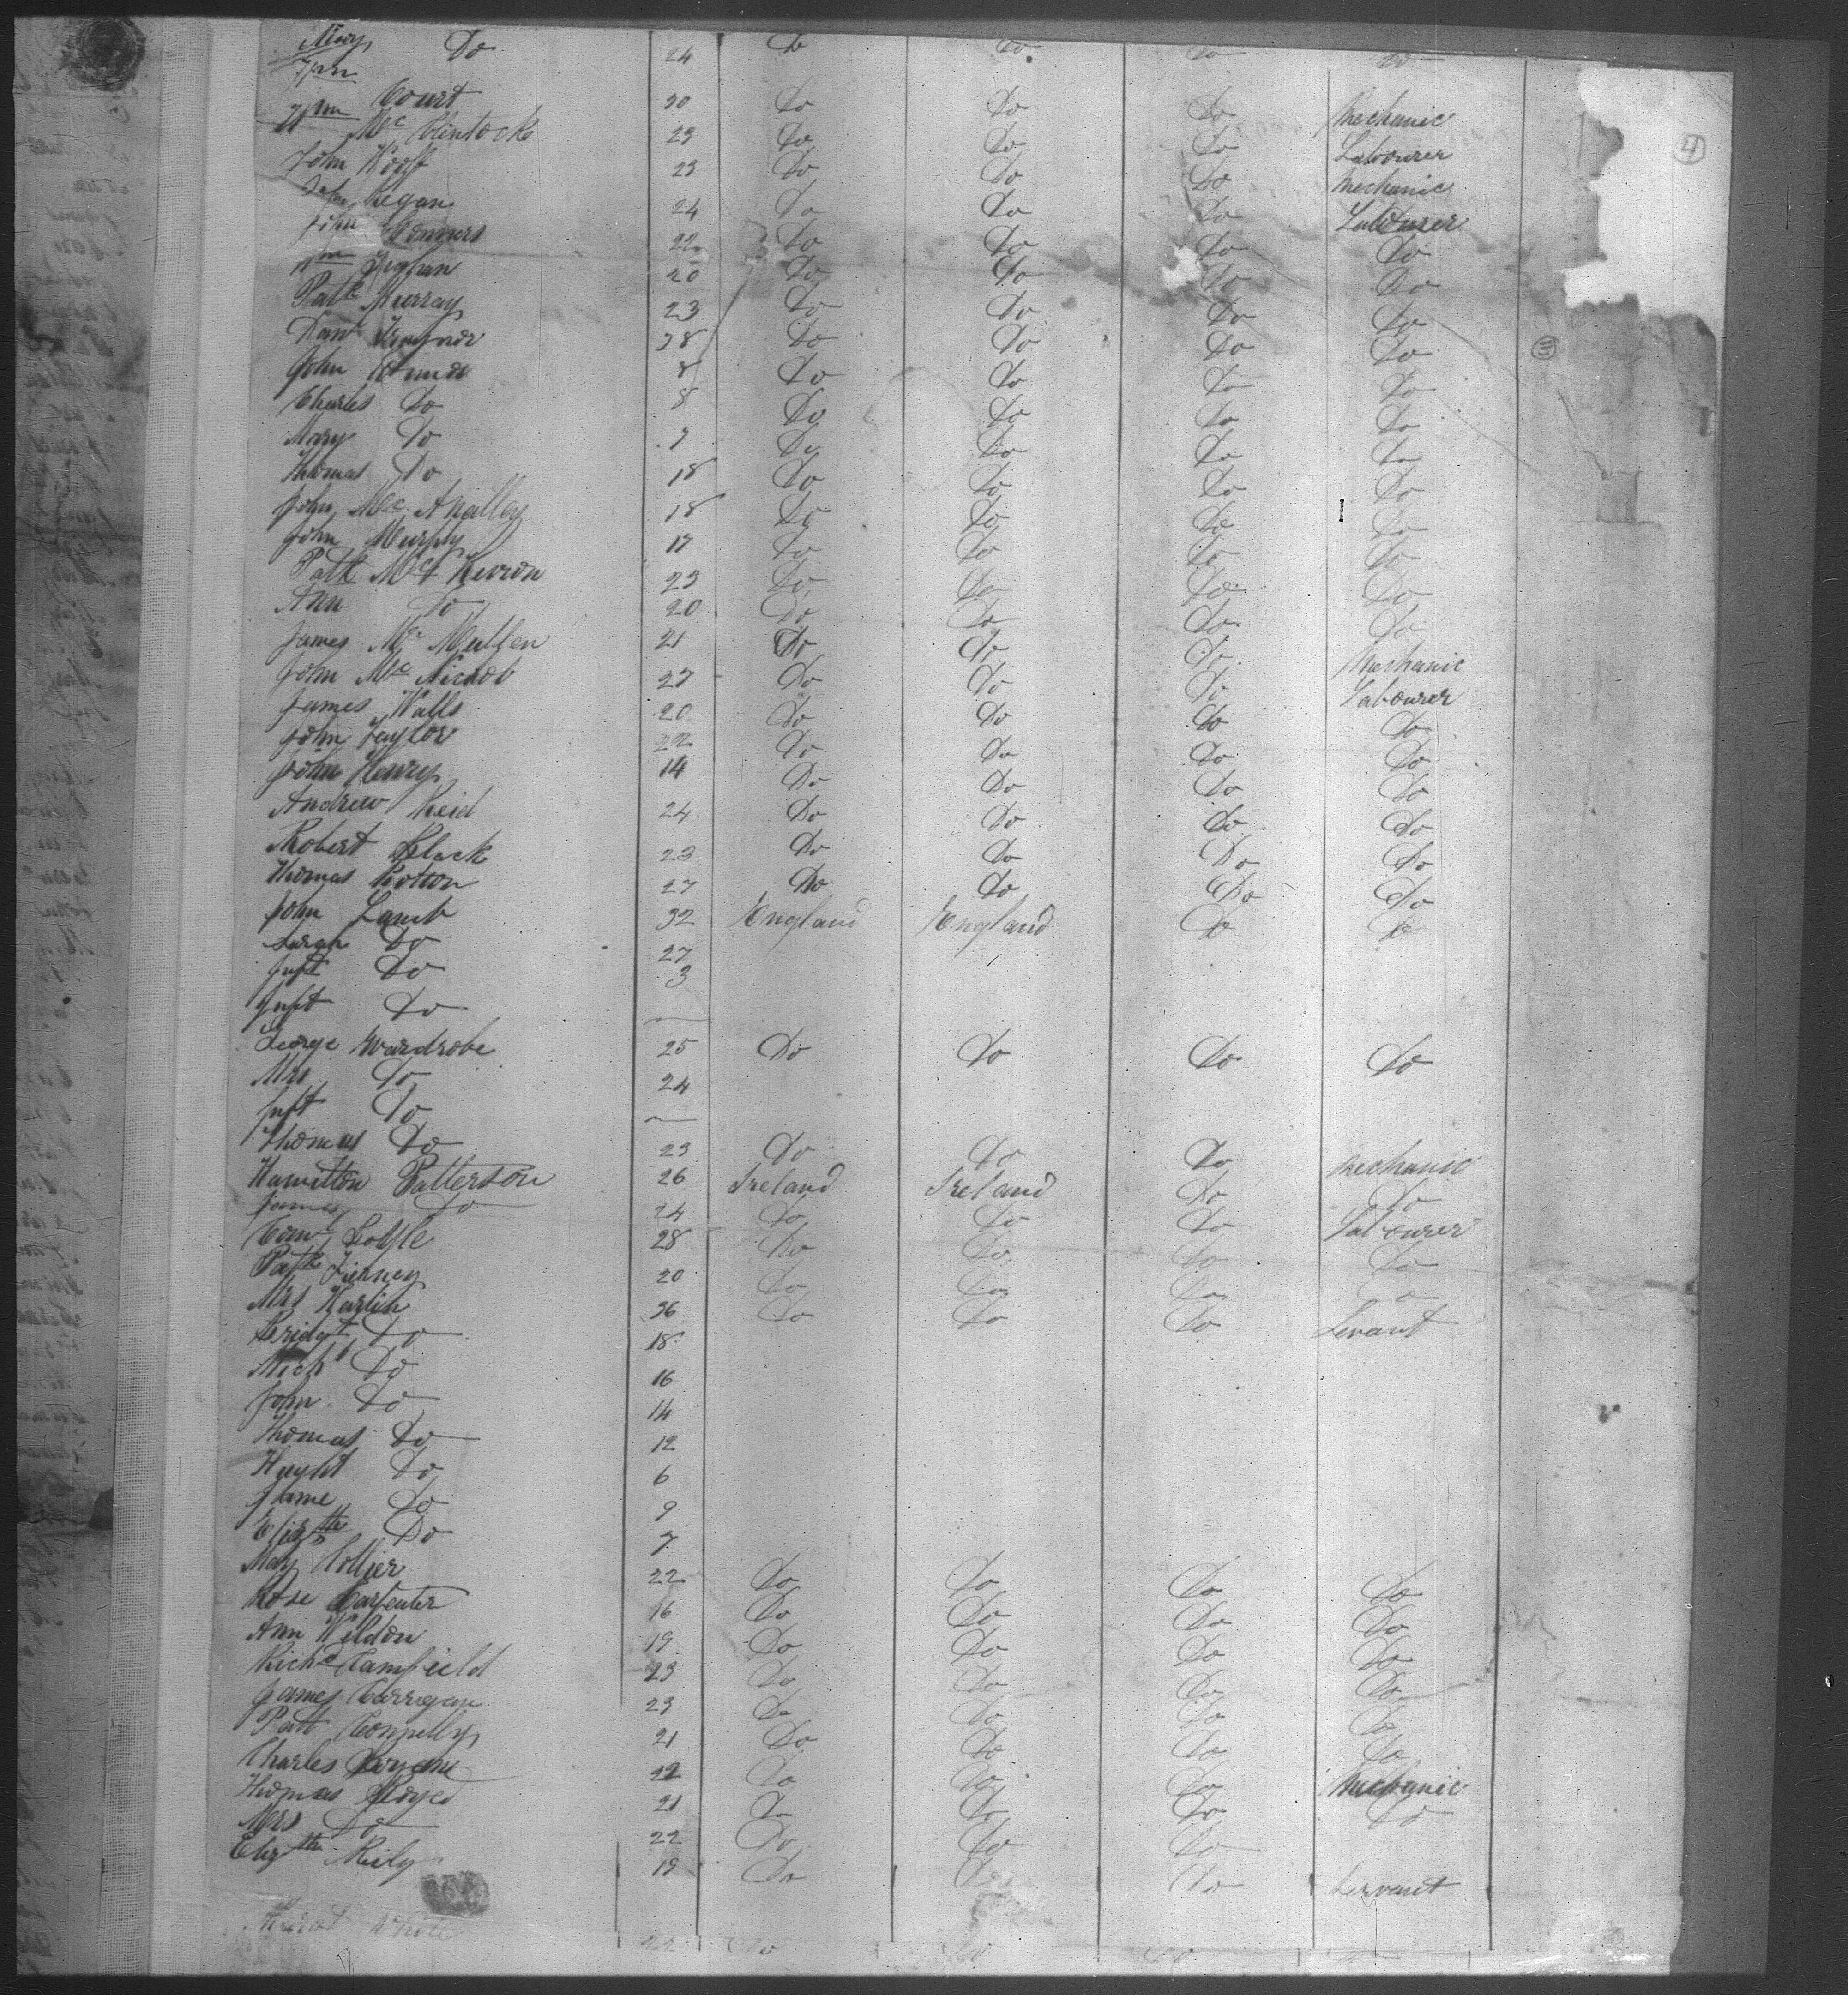 Mary Do 24 Do Do Do Do
Wm Court 30 Do Do Do Mechanic
Wm Mc Clintock 23 Do Do Do Labourer
John Woolf 23 Do Do Do Mechanic
John Regan 24 Do Do Do Labourer
John Conners 22 Do Do Do Do
Wm 20 Do Do Do Do
Patk Murray 23 Do Do Do Do
Danl 38 Do Do Do Do
John 8 Do Do Do Do
Charles Do 8 Do Do Do Do
Mary Do 7 Do Do Do Do
Thomas Do 18 Do Do Do Do
John Mc Analley 18 Do Do Do Do
John Murphy 17 Do Do Do Do
Patk 23 Do Do Do Do
Ann Do 20 Do Do Do Do
James Mc Mullen 21 Do Do Do Mechanic
John Mc Nichol 27 Do Do Do Labourer
James Walls 20 Do Do Do Do
John Taylor 22 Do Do Do Do
John Henry 14 Do Do Do Do
Andrew Reid 24 Do Do Do Do
Robert Black 23 Do Do Do Do
Thomas Rotton 27 Do Do Do Do
John Lamb 32 England England Do Do
Sarah Do 27
Inft Do 3
Inft Do
George Wardrobe 25 Do Do Do Do
Mrs Do 24
Inft Do
Thomas Do 23 Do Do Do Mechanic
Hamilton Patterson 26 Ireland Ireland Do Do
James Do 24 Do Do Do Labourer
28 Do Do Do Do
Patk Tierney 20 Do Do Do Do
Mrs Harlin 36 Do Do Do Servant
Bridgt Do 18
Michl Do 16
John Do 14
Thomas Do 12
Hught Do 6
Jame Do 9
Elizth Do 7
Mary Collier 22 Do Do Do Do
Rose Carpenter 16 Do Do Do Do
Ann Weldon 19 Do Do Do Do
Richd Camfield 23 Do Do Do Do
James Corrigan 23 Do Do Do Do
Patt Connelly 21 Do Do Do Do
Charles 22 Do Do Do Mechanic
Thomas 21 Do Do Do Do
Mrs Do 22 Do Do Do
Elizth Rily 19 Do Do Do Servant
White 22 Do Do Do Do
4